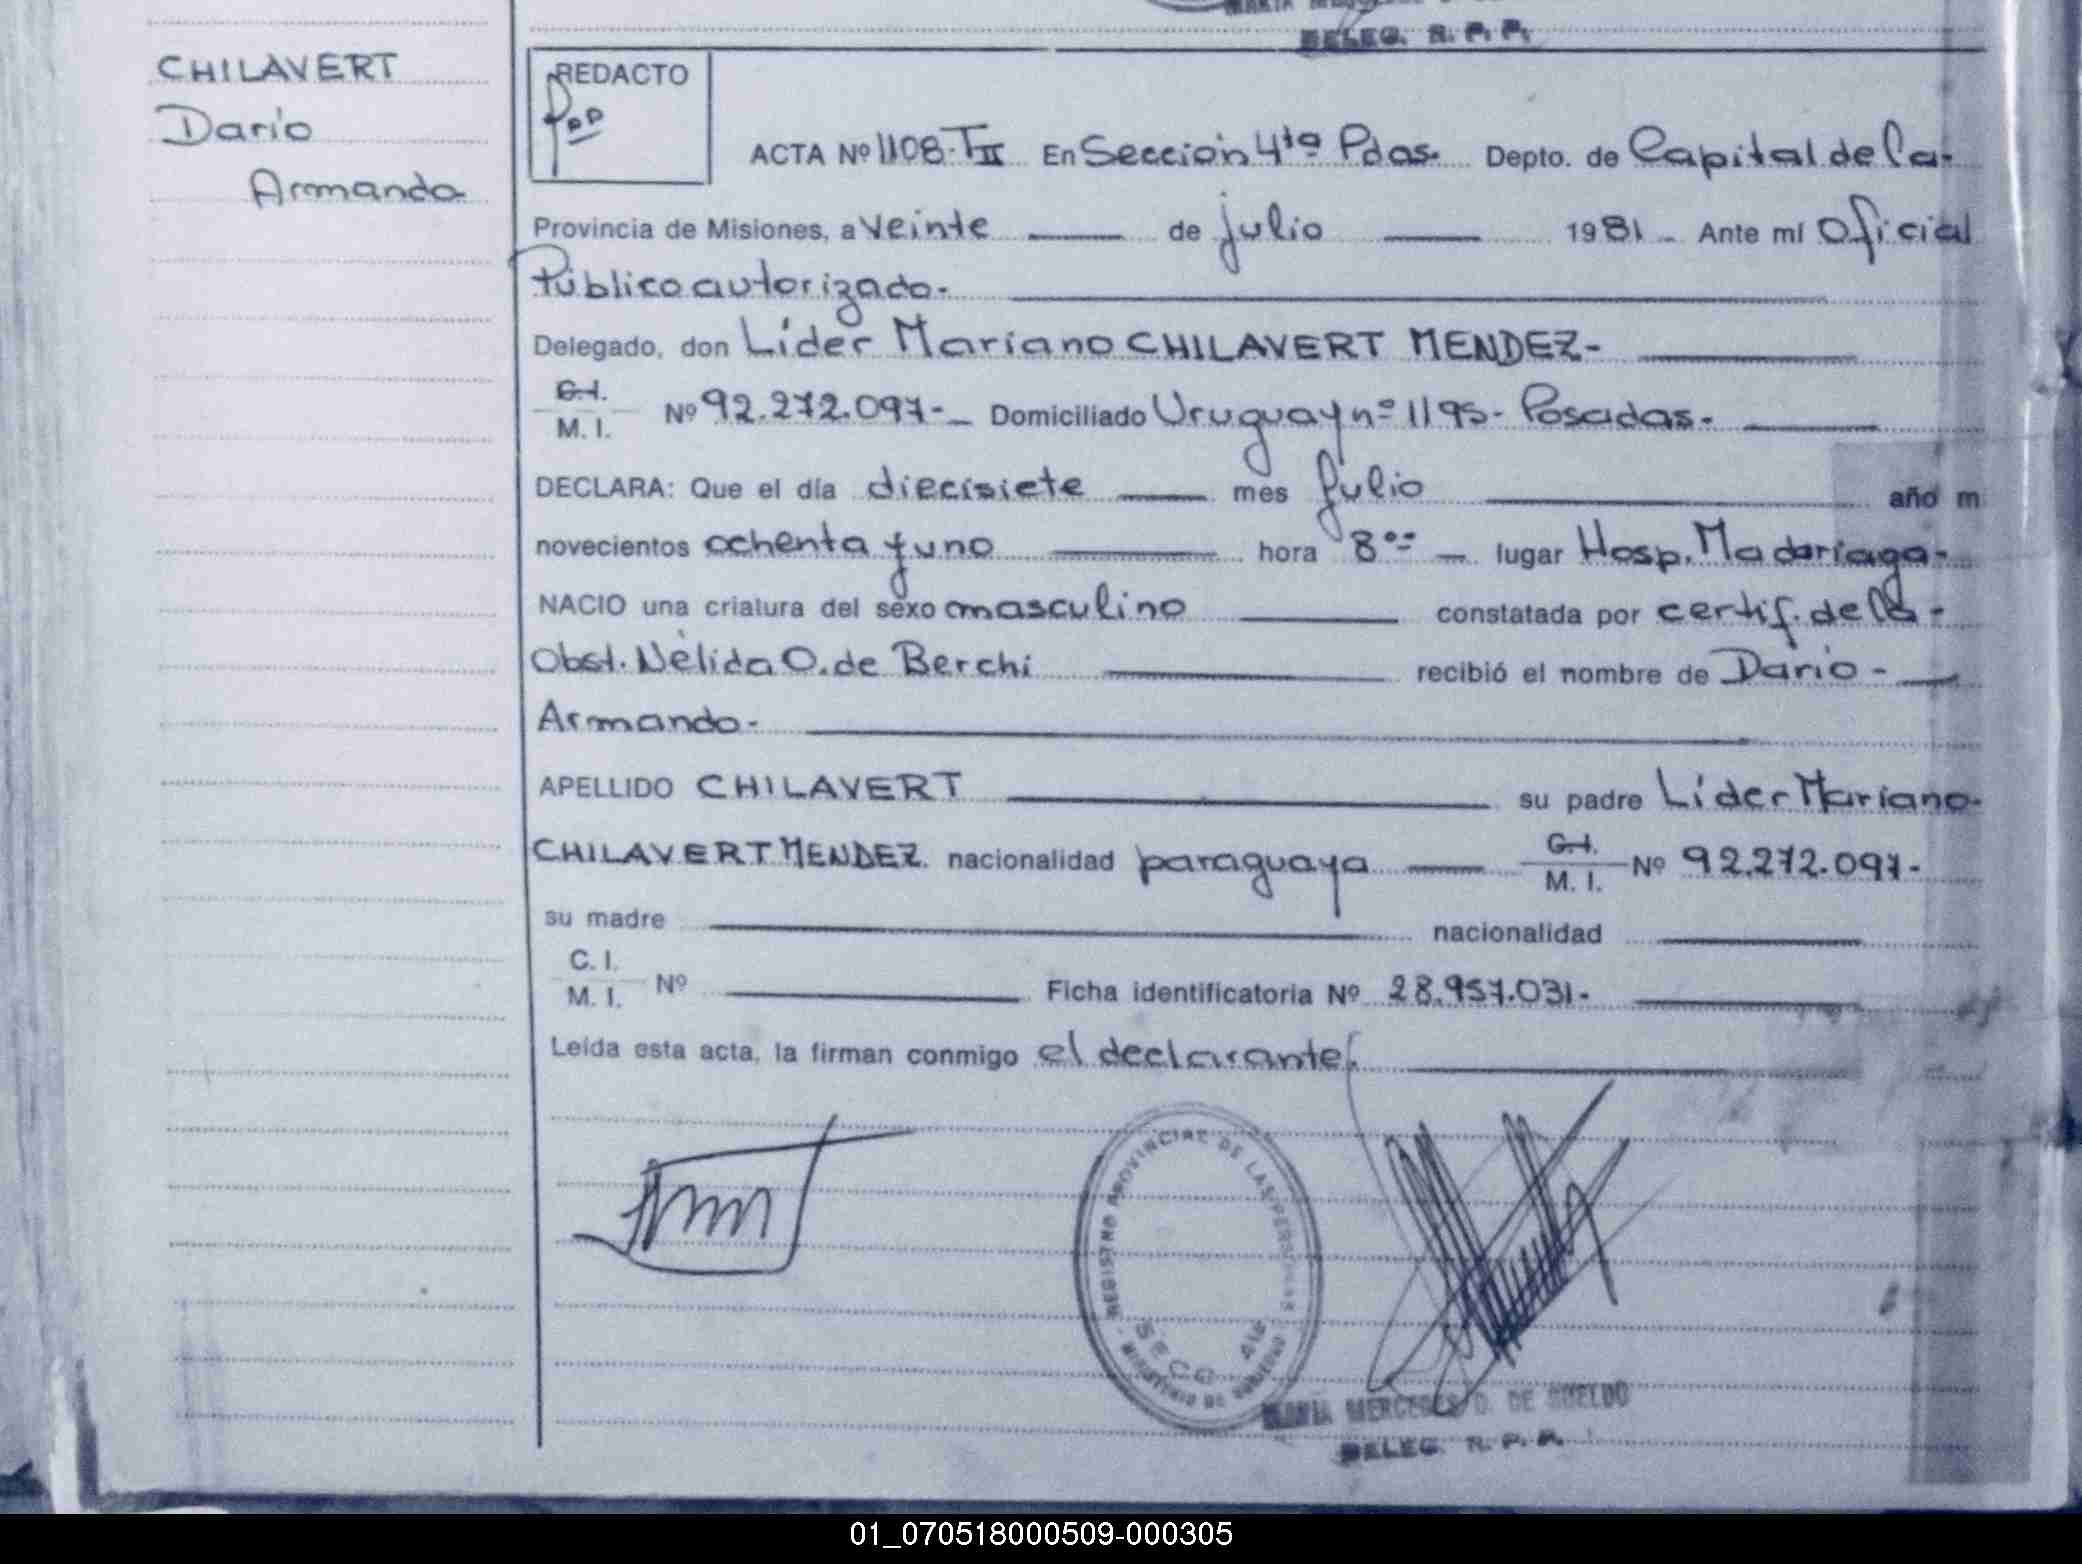 DELEG. R. P. P.
CHILAVERT
Darío
Armando
REDACTO
ACTA Nº 1108-TII En Sección 4ta Pdas. Depto. de Capital de la-
Provincia de Misiones, a veinte de julio 1981- Ante mí Oficial
Público autorizado-
Delegado, don Líder Mariano CHILAVERT MENDEZ-
C.I.
M. I. Nº 92.272.097- Domiciliado Uruguay nº 1195- Posadas-
DECLARA: Que el día diecisiete mes julio año m
novecientos ochenta y uno hora 8ºº lugar Hosp. Madariaga-
NACIO una criatura del sexo masculino constatada por certif. de la-
Obst. Nélida O. de Berchi recibió el nombre de Darío-
Armando-
APELLIDO CHILAVERT su padre Líder Mariano-
CHILAVERT MENDEZ nacionalidad paraguaya C.I. M. I. Nº 92.272.097-
su madre nacionalidad
C. I.
M. I. Nº Ficha identificatoria Nº 28.957.031-
Leída esta acta, la firman conmigo el declarante.
REGISTRO PROVINCIAL DE LAS PERSONAS
SECC. 4ta
MINISTERIO DE GOBIERNO
MARIA MERCEDES D. DE SUELDO
DELEG. R. P. P.
01_070518000509-000305